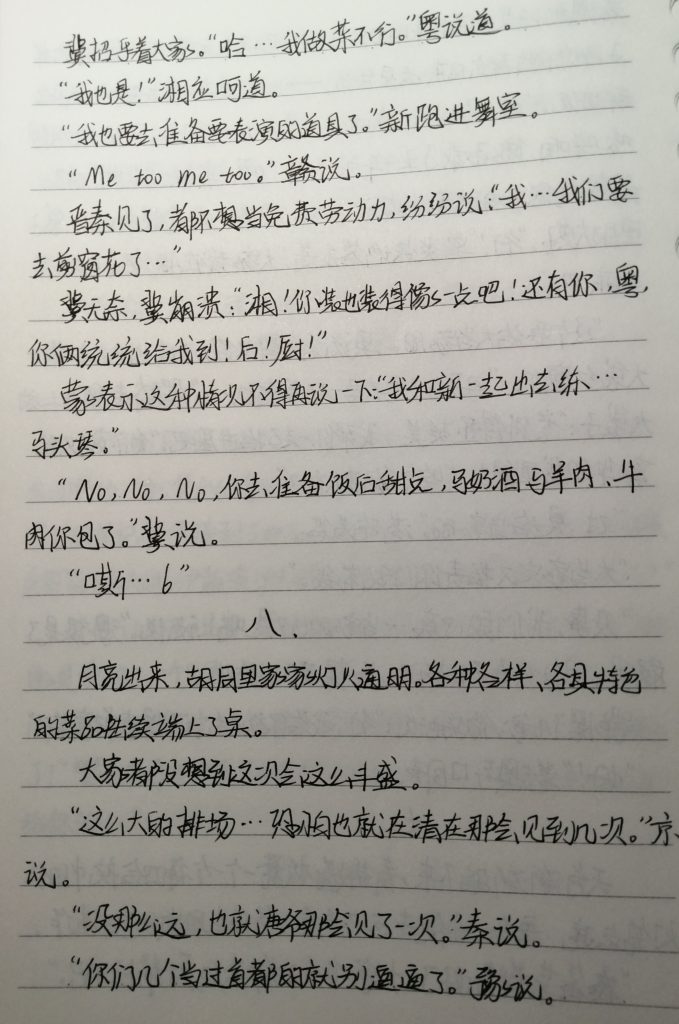 冀招乎着大家。“哈…我做菜不行。”粤说道。
“我也是！”湘应呵道。
“我也要去准备要表演的道具了。”新跑进舞室。
“Me too me too。”赣说。
晋秦见了，都不想当免费劳动力，纷纷说：“我…我们要
去剪窗花了…”
冀无奈，冀崩溃：“湘！你装也装得像一点吧！还有你，粤，
你俩统统给我到！后！厨！”
蒙表示这种情况不得再说一下：“我和新一起出去练…
马头琴。”
“No，No，No，你去准备饭后甜点，马奶酒马羊肉、牛
肉你包了。”冀说。
“嘶…6”
八．
月亮出来，胡同里家家灯火通明。各种各样、各具特色
的菜品陆续端上了桌。
大家都没想到这次会这么丰盛。
“这么大的排场…强怕也就在清在那会见到几次。”京
说。
“没那么远，也就唐那会见了一次。”秦说。
“你们几个当过首都的就别逼逼了。”豫说。